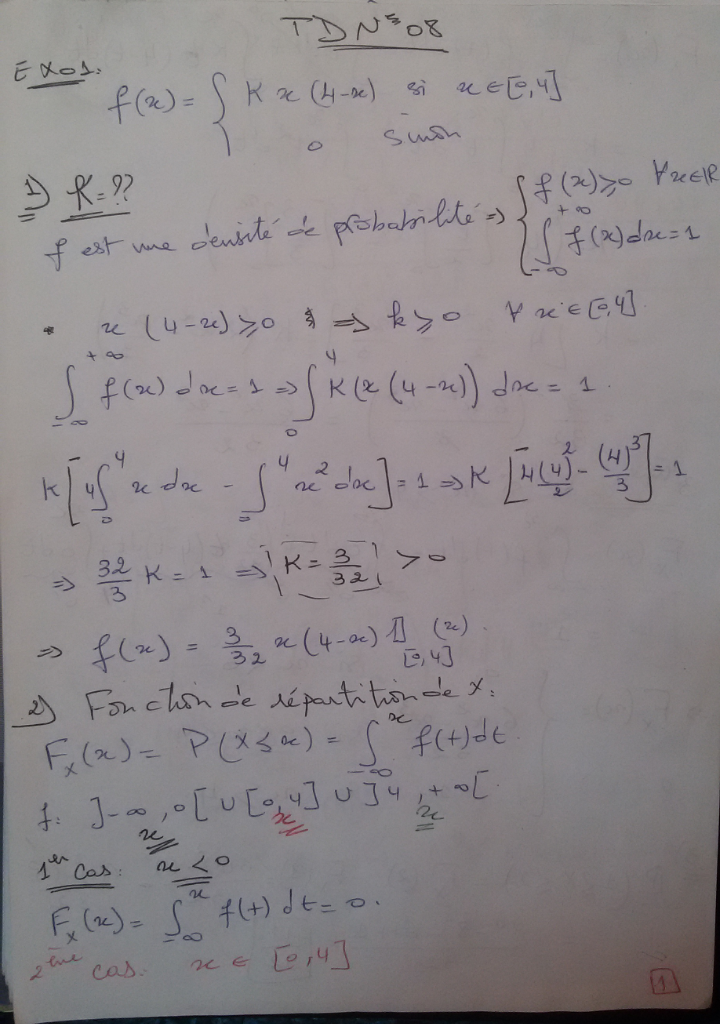 TD N° 08
EX01.
f(x) = { K x (4-x) si x ∈ [0,4]
0 sinon
1) K = ??
f est une densité de probabilité => { f(x) ≥ 0 ∀x∈ℝ
∫_{-∞}^{+∞} f(x) dx = 1
• x (4-x) ≥ 0 => k ≥ 0 ∀ x ∈ [0,4].
∫_{-∞}^{+∞} f(x) dx = 1 => ∫_0^4 K(x(4-x)) dx = 1.
K[4∫_0^4 x dx - ∫_0^4 x² dx] = 1 => K [4(4)²/2 - (4)³/3] = 1
=> 32/3 K = 1 => K = 3/32 > 0
=> f(x) = 3/32 x(4-x) 𝟙_{[0,4]} (x).
2) Fonction de répartition de X.
F_X(x) = P(X ≤ x) = ∫_{-∞}^x f(t) dt
f: ]-∞, 0[ ∪ [0,4] ∪ ]4, +∞[
x x x
1er cas: x < 0
F_X(x) = ∫_{-∞}^x f(t) dt = 0.
2ème cas. x ∈ [0,4]
1